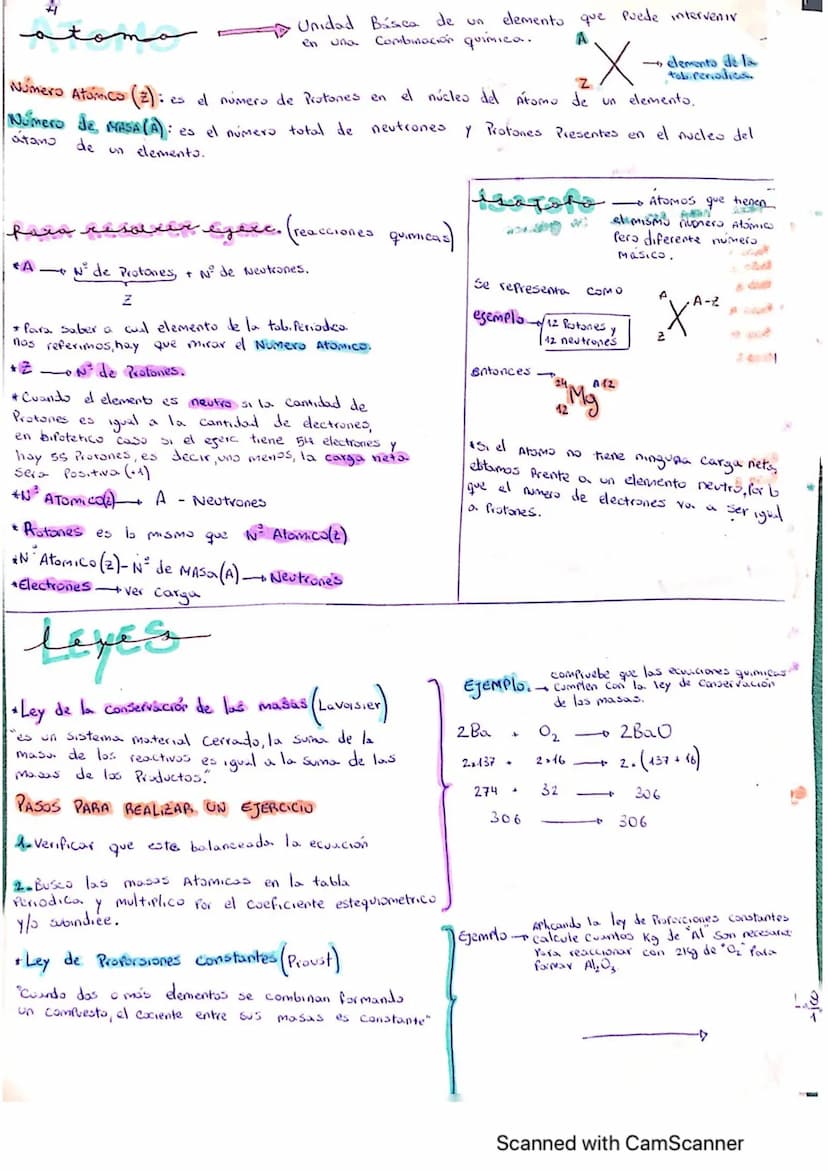 Atomo → Unidad Básica de un elemento que puede intervenir
en una Combinación química.
A
Z X → elemento de la
tab. Periodica.
Número Atómico (Z): es el número de Protones en el núcleo del Átomo de un elemento.
Número de MASA (A): es el número total de neutrones y Protones Presentes en el nucleo del
átomo de un elemento.
Para resolver ejerc. (reacciones quimicas)
*A → Nº de Protones + Nº de Neutrones.
Z
* Para saber a cual elemento de la tab. Periodica
nos referimos, hay que mirar el Número Atómico.
*Z → Nº de Protones.
* Cuando el elemento es neutro si la cantidad de
Protones es igual a la cantidad de electrones,
en hipotetico caso si el ejerc tiene 54 electrones y
hay 55 Protones, es decir, uno menos, la carga neta
sera Positiva (+1)
*Nº Atomico(z) → A - Neutrones
* Protones es lo mismo que Nº Atomico(z)
*Nº Atomico (z) - Nº de MASA (A) → Neutrones
*Electrones → ver carga
isotopo → Átomos que tienen
el mismo número Atómico
Pero diferente número
másico.
Se representa como
A
Z X A-Z
ejemplo → 12 Protones y
12 neutrones
entonces →
24 A 12
Mg
12
*Si el Atomo no tiene ninguna carga neta,
estamos frente a un elemento neutro, por lo
que el numero de electrones va a ser igual
a Protones.
Leyes
*Ley de la conservación de las masas (Lavoisier)
"es un sistema material cerrado, la suma de la
masa de los reactivos es igual a la suma de las
masas de los Productos."
PASOS PARA REALIZAR UN EJERCICIO
1. Verificar que este balanceada la ecuación
2. Busco las masas Atomicas en la tabla
Periodica y multiplico Por el coeficiente estequiometrico
y/o subindice.
EJEMPLO. → compruebe que las ecuaciones quimicas
cumplen con la ley de conservación
de las masas.
2Ba + O₂ → 2BaO
2.137 + 2.16 → 2.(137 + 16)
274 + 32 → 306
306 → 306
*Ley de Proporsiones constantes (Proust)
"Cuando dos o más elementos se combinan formando
un compuesto, el cociente entre sus masas es constante"
Ejemplo → Aplicando la ley de Proporciones constantes
calcule cuantos Kg de "Al" son necesarios
Para reaccionar con 21Kg de "O₂" Para
formar Al₂O₃
Scanned with CamScanner